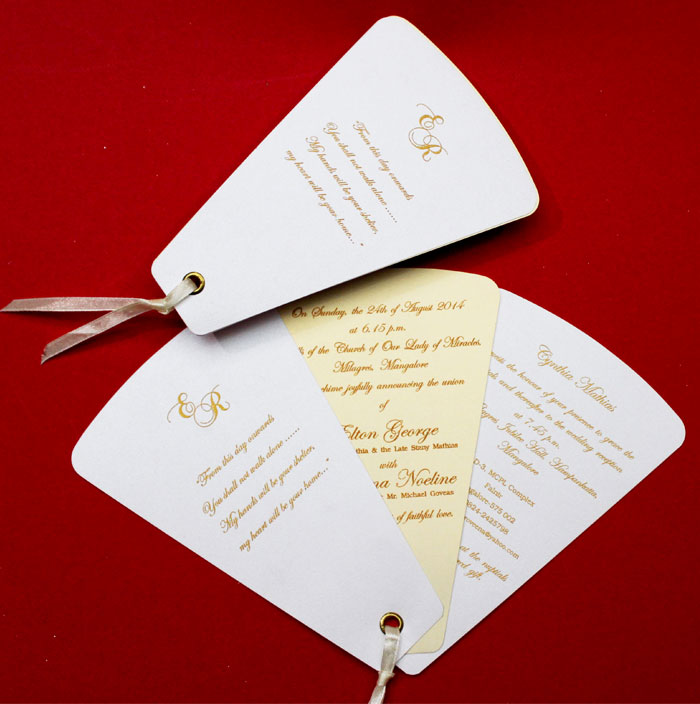 ER
"From this day onwards
You shall not walk alone ......
My hands will be your shelter,
my heart will be your home..."
ER
"From this day onwards
You shall not walk alone ......
My hands will be your shelter,
my heart will be your home..."
On Sunday, the 24th of August 2014
at 6.15 p.m.
of the Church of Our Lady of Miracles,
Milagres, Mangalore
chime joyfully announcing the union
of
Elton George
& the late Stany Mathias
with
Noeline
Mr. Michael Goveas
of faithful love.
Cynthia Mathias
the honour of your presence to grace the
and thereafter to the wedding reception
at 7.45 p.m.
Mangalore.
MCPL Complex
Falnir
575 002
0824-2425798
@yahoo.com
at the nuptials
gift.